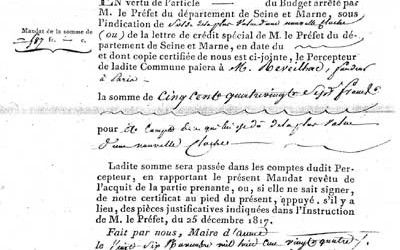 EN vertu de l'article du Budget arrêté par
M. le Préfet du département de Seine et Marne, sous
l'indication de plus value d'une nouvelle cloche
(ou) de la lettre de crédit spécial de M. le Préfet du dé-
partement de Seine et Marne, en date du
et dont copie certifiée nous est ci-jointe, le Percepteur
de ladite Commune paiera à M. fondeur
à Paris
Mandat de la somme de
587 fr. c.
la somme de Cinq cent quatre vingt Sept francs
pour de la plus value
d'une nouvelle cloche
Ladite somme sera passée dans les comptes dudit Per-
cepteur, en rapportant le présent Mandat revêtu de
l'acquit de la partie prenante, ou, si elle ne sait signer,
de notre certificat au pied du présent, appuyé, s'il y a
lieu, des pièces justificatives indiquées dans l'Instruction
de M. le Préfet, du 25 décembre 1817.
Fait par nous, Maire d
le vingt Six mil huit cent vingt quatre